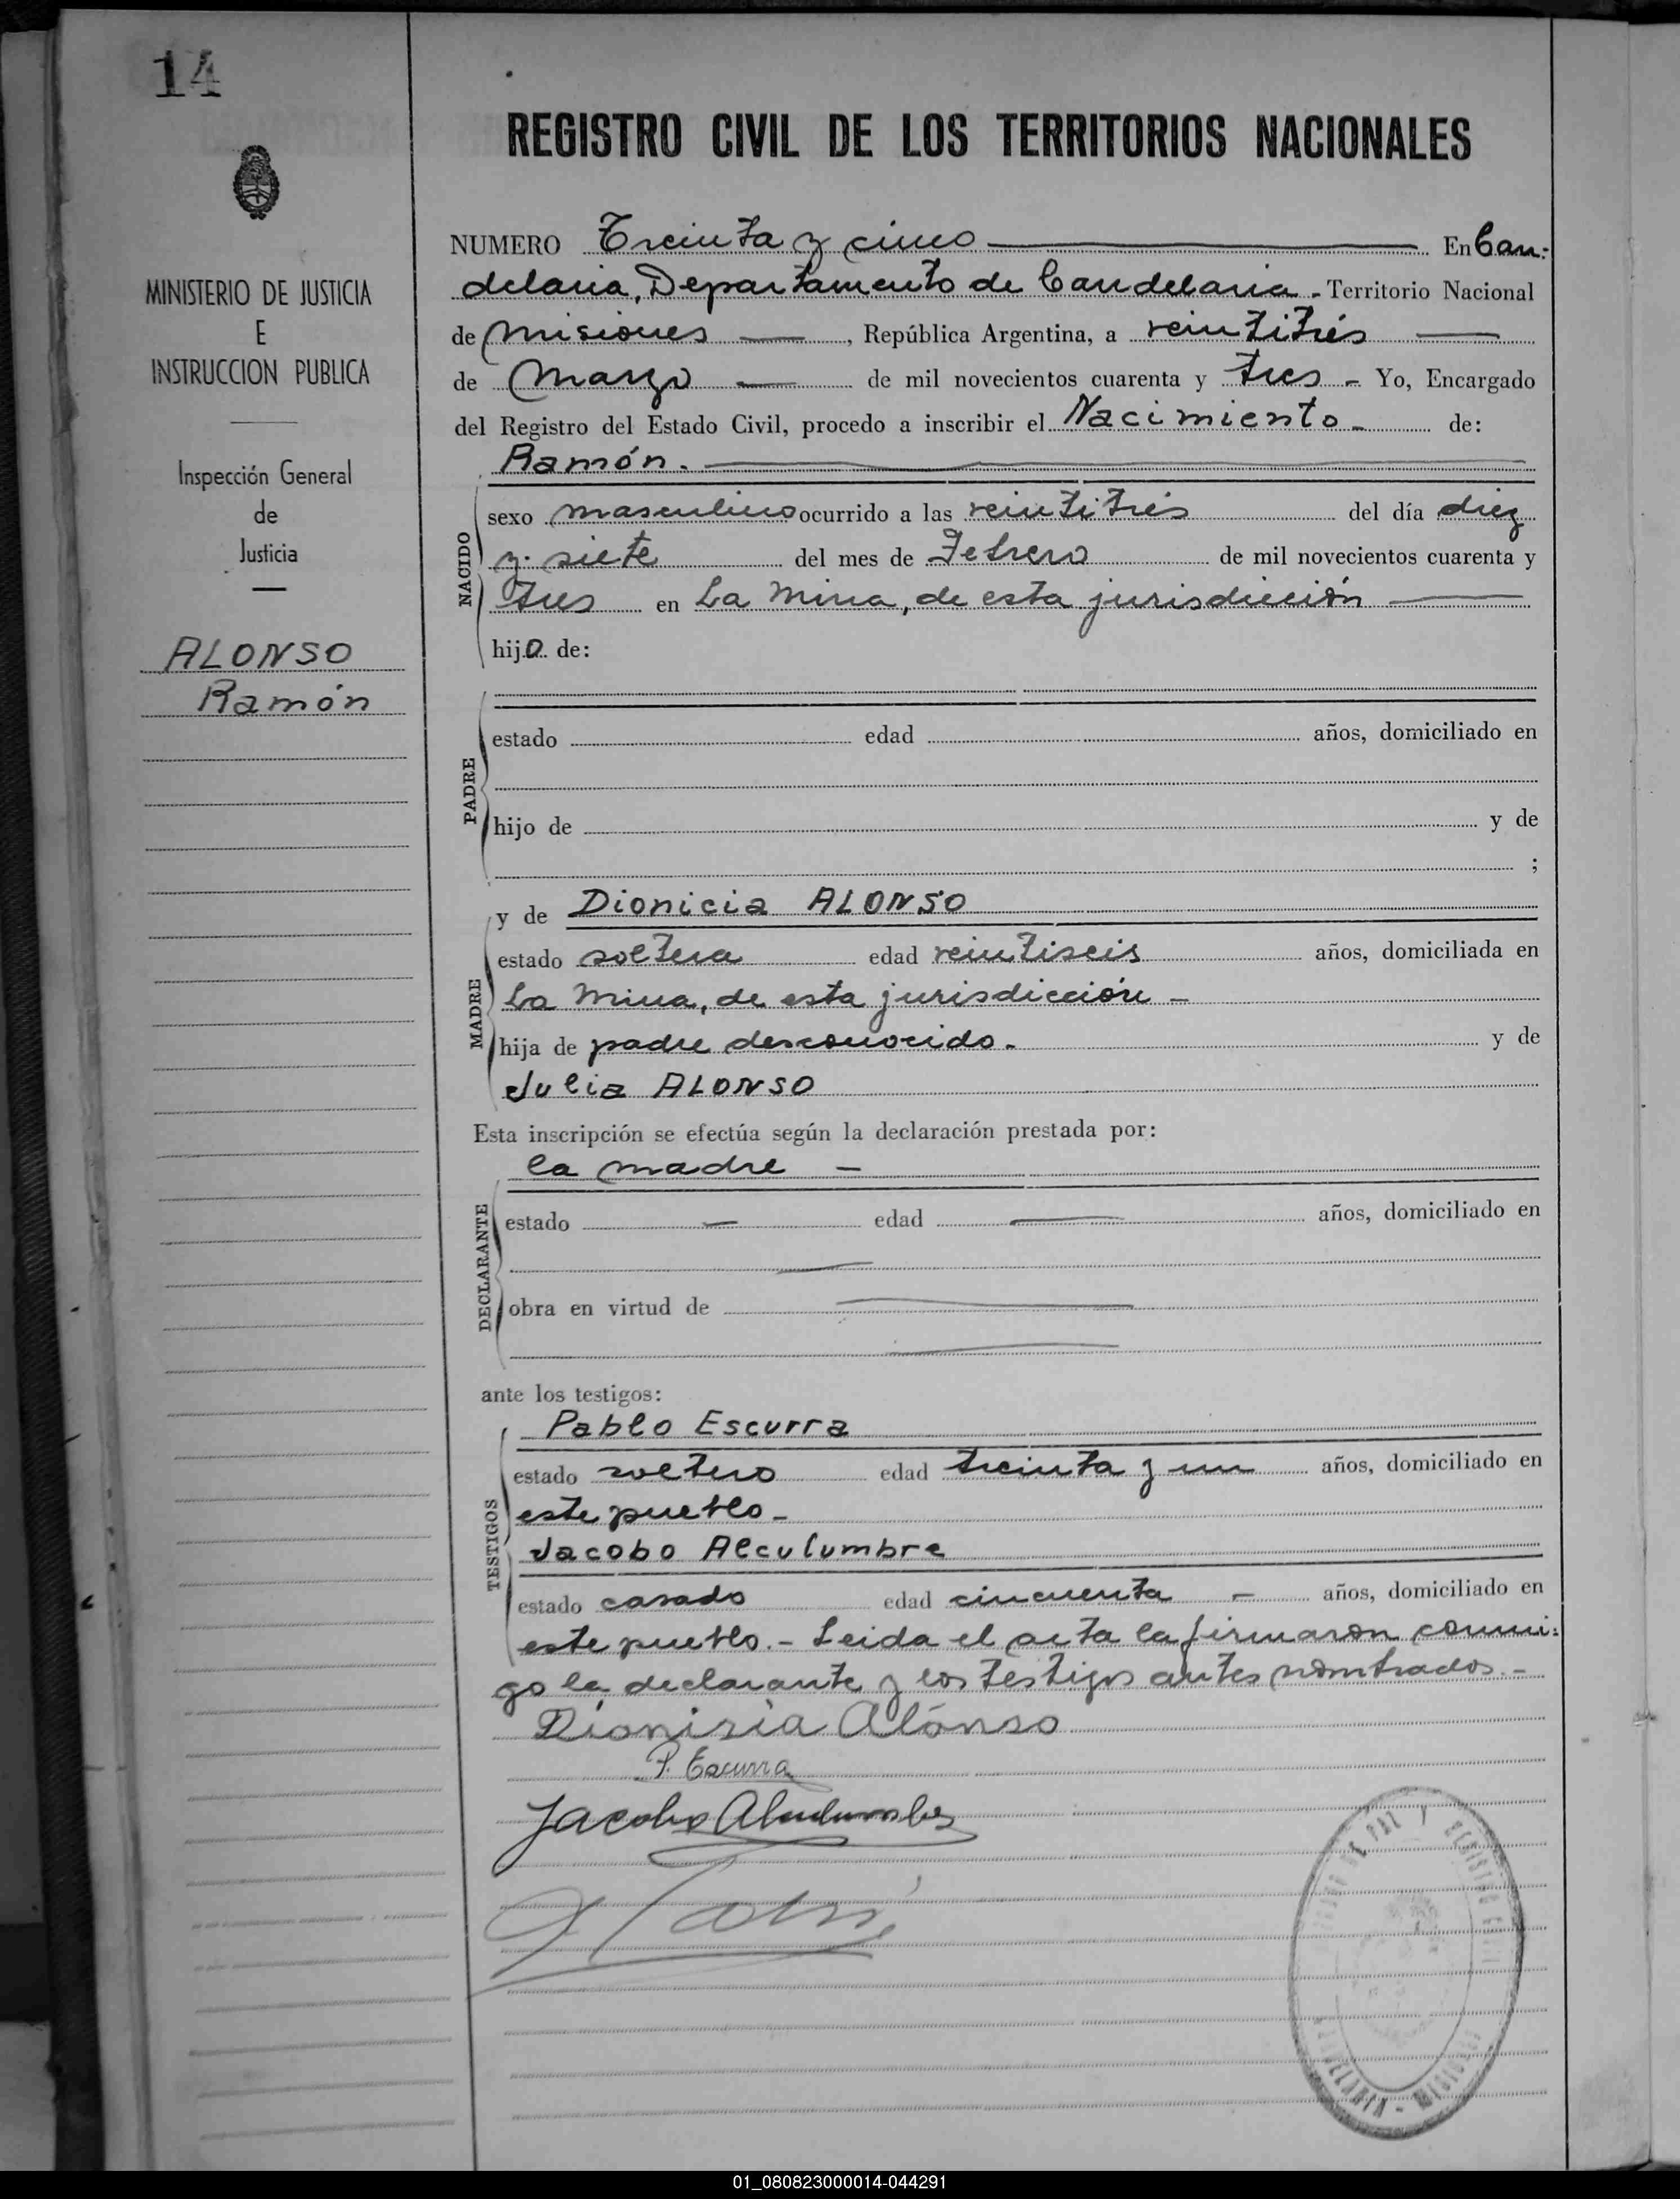 14
MINISTERIO DE JUSTICIA
E
INSTRUCCION PUBLICA
Inspección General
de
Justicia
ALONSO
Ramón
REGISTRO CIVIL DE LOS TERRITORIOS NACIONALES
NUMERO Treinta y cinco En Can-
delaria, Departamento de Candelaria - Territorio Nacional
de Misiones, República Argentina, a veintitrés
de Marzo de mil novecientos cuarenta y tres - Yo, Encargado
del Registro del Estado Civil, procedo a inscribir el Nacimiento - de:
Ramón.
NACIDO
sexo masculino ocurrido a las veintitrés del día diez
y siete del mes de Febrero de mil novecientos cuarenta y
tres en La Mina, de esta jurisdicción
hijo de:
PADRE
estado edad años, domiciliado en
hijo de y de
;
MADRE
y de Dionicia ALONSO
estado soltera edad veintiseis años, domiciliada en
La Mina, de esta jurisdicción -
hija de padre desconocido. y de
Julia ALONSO
Esta inscripción se efectúa según la declaración prestada por:
la madre -
DECLARANTE
estado edad años, domiciliado en
obra en virtud de
ante los testigos:
TESTIGOS
Pablo Escurra
estado soltero edad treinta y un años, domiciliado en
este pueblo -
Jacobo Alculumbre
estado casado edad cincuenta - años, domiciliado en
este pueblo. - Leida el acta la firmaron conmi-
go la declarante y los testigos antes nombrados. -
Dionisia Alónso
P. Escurra
Jacobo Alculumbre
DE PAZ Y REGISTRO CIVIL
CANDELARIA - MISIONES
01_080823000014-044291